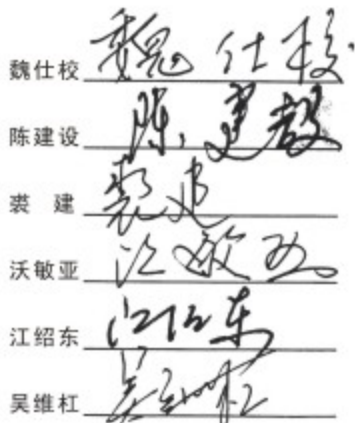 魏仕校 魏仕校
陈建设 陈建设
裘 建 裘建
沃敏亚 沃敏亚
江绍东 江绍东
吴维杠 吴维杠